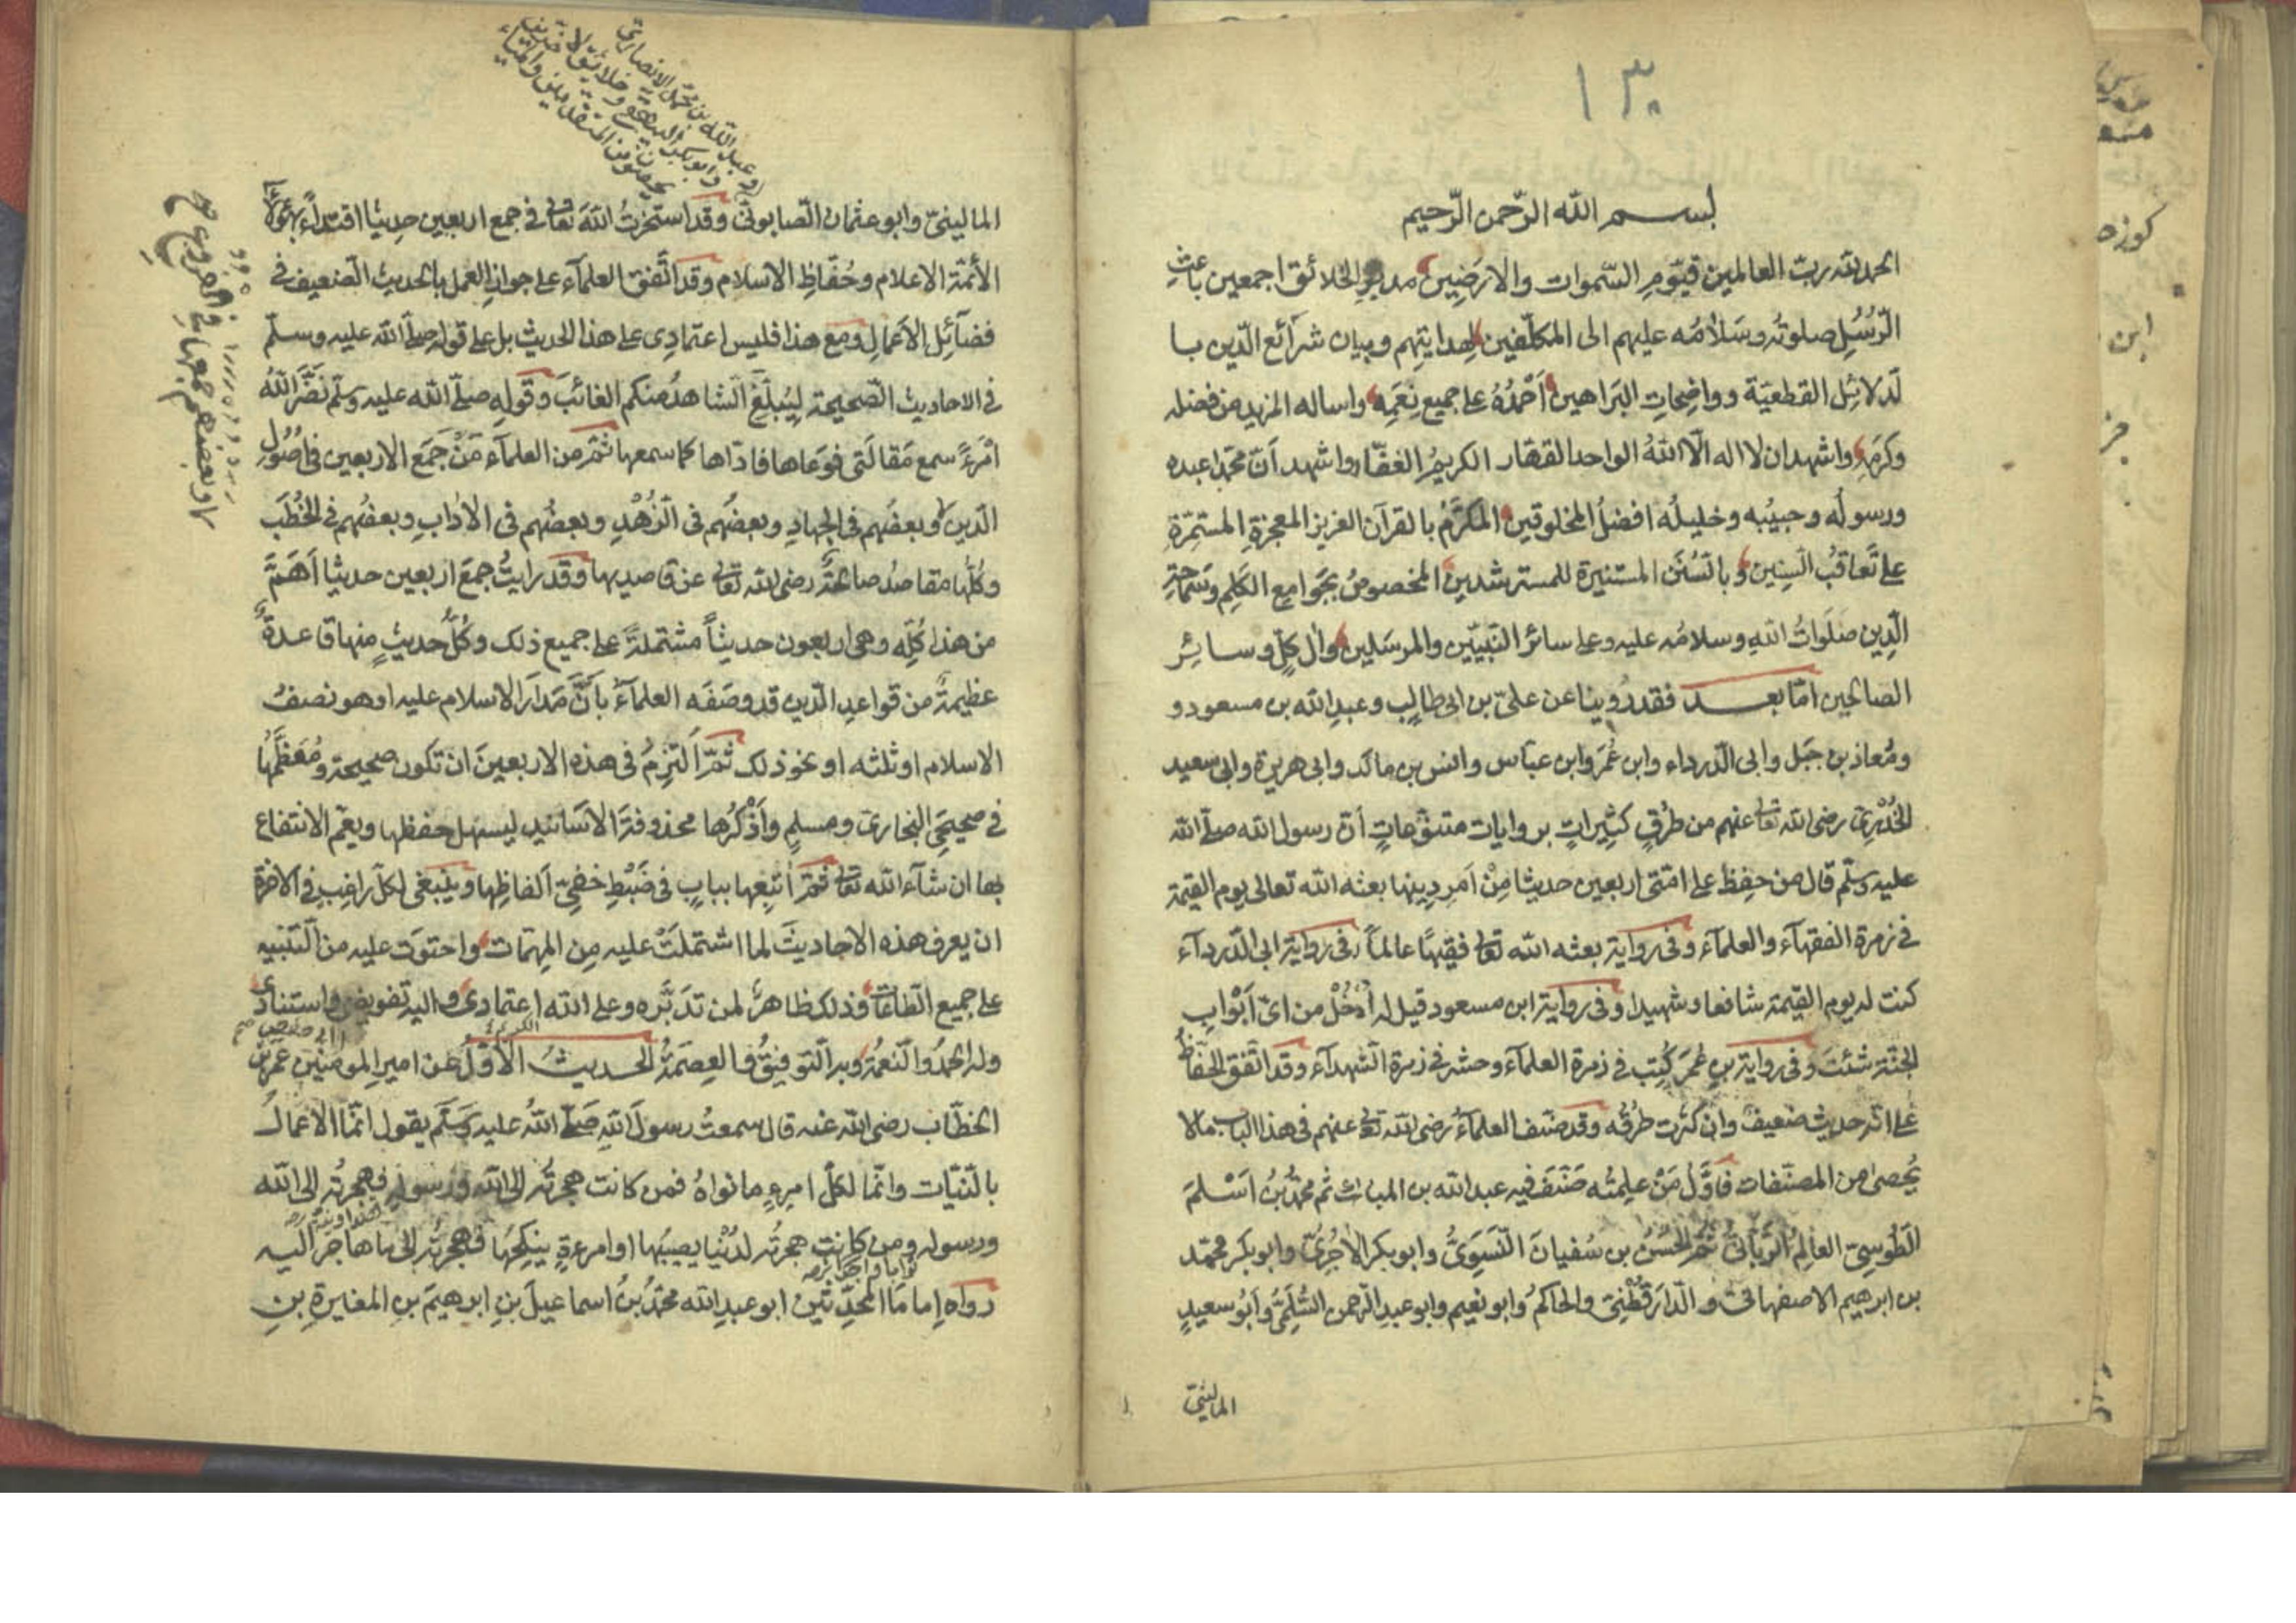 ١٣٠
بسم الله الرّحمن الرّحيم
الحمد لله ربّ العالمين قيّوم السّموات والارضين مدبر الخلائق اجمعين باعث
الرّسُل صلوته وسَلامُه عليهم الى المكلّفين لهدايتهم وبيان شرائع الدّين با
لدلائل القطعيّة وواضحات البراهين اَحْمَدُهُ على جميع نعَمِه واساله المزيد من فضله
وكرَمِه واشهد ان لا اله الّا اللهُ الواحد القهّار الكريمُ الغفّار واشهد انّ محمّدا عبده
ورسولُه وحبيبُه وخليلُه افضلُ المخلوقين المكرَّمُ بالقرآن العزيز المعجزة المستمرّة
على تَعاقُب السّنين وبالسّنَن المستنيرة للمسترشدين المخصوصُ بجَوامع الكَلِم وسَمَاحة
الدّين صَلَواتُ الله وسلامُه عليه وعلى سائر النّبيّين والمرسَلين وآل كلٍّ وسائر
الصالحين امّا بعد فقد رُوينا عن علىّ بن ابى طالب وعبد الله بن مسعود و
ومُعاذ بن جَبَل وابى الدّرداء وابن عُمَر وابن عبّاس وانس بن مالك وابى هريرة وابى سعيد
الخُدْرِىّ رضى الله تعالى عنهم من طُرُقٍ كثيراتٍ بروايات متنوّعاتٍ انّ رسول الله صلّى الله
عليه وسلّم قال من حفِظ على امّتى اربعين حديثا مِنْ اَمر دِينها بعثه الله تعالى يوم القيمة
فى زمرة الفقهآء والعلمآء وفى رواية بعثه الله تعالى فقيهًا عالماً وفى رواية ابى الدّردآء
كنت له يوم القيمة شافعا وشهيدا وفى رواية ابن مسعود قيل له اُدْخُلْ من اىّ اَبْوابِ
الجنّة شئتَ وفى رواية بن عُمَر كُتِب فى زمرة العلمآء وحشر فى زمرة الشهدآء وقد اتّفق الحفّاظُ
على انّه حديث ضعيف وان كثرت طرُقُه وقد صنّف العلمآءُ رضى الله تعالى عنهم فى هذا الباب مالا
يُحصى من المصنّفات فاَوَّلُ مَنْ علِمتُه صَنّفَ فيه عبد الله بن المبارك ثم محمّدُ بنُ اَسْلمَ
الطُّوسىّ العالِمُ الرَّبّانىُّ ثمّ الحَسَنُ بن سُفيانَ النّسَوِىُّ وابو بكر الاٰجُرِىُّ وابو بكر محمّد
بن ابرهيم الاصفهانىّ والدّارَقُطْنِىّ والحاكمُ وابو نعيم وابو عبد الرّحمن السُّلَمِىُّ وَابُو سعيدٍ
المالينىّ
وعبد الله بن محمّد الانصارىّ
وابو بكر البيهقىّ وخلائق لا
يحصون من المتقدمين والمتأخرين
المالينىّ وابو عثمان الصّابونىّ وقد استخرتُ اللهَ تعالى فى جمع اربعين حديثا اقتداءً بهؤلاء
الأئمّة الاعلام وحُفّاظِ الاسلام وقد اتّفق العلمآء على جواز العمل بالحديث الضعيف فى
فضآئل الاَعمال ومع هذا فليس اعتمادِى على هذا الحديث بل على قوله صلّى الله عليه وسلّم
فى الاحاديث الصّحيحة لِيُبلّغ الشاهدُ منكم الغائبَ وقوله صلّى الله عليه وسلّم نضَّر اللهُ
امْرءً سمع مَقالَتى فوَعاها فادّاها كما سمعها ثمّ من العلمآء مَنْ جَمَع الاربعين فى اصُولِ
الدّين وبعضُهم فى الجهادِ وبعضُهم فى الزُهْدِ وبعضُهم فى الاٰدابِ وبعضُهم فى الخُطَب
وكلُّها مقاصدُ صالحةٌ رضى الله تعالى عن قاصديها وقد رايتُ جمعَ اربعين حديثا اَهَمَّ
من هذا كُلِّه وهى اربعون حديثاً مشتملةً على جميع ذلك وكُلُّ حديثٍ منها قاعدةٌ
عظيمةٌ من قواعدِ الدّين قد وصَفَه العلمآءُ باَنّ مَدارَ الاسلام عليه او هو نصفُ
الاسلام او ثلثه او نحو ذلك ثمّ اَلتزمُ فى هذه الاربعينَ ان تكون صحيحة ومُعَظَمُها
فى صحيحَىِ البخارىّ ومسلمٍ واَذْكُرُها محذوفةَ الاَسَانيد ليسهل حفظها ويعُمّ الانتفاع
بها ان شآء الله تعالى ثمّ اُتبعها ببابٍ فى ضَبْطِ خفىّ اَلفاظِها وينبغى لكلّ راغبٍ فى الاخرة
ان يعرف هذه الاحاديثَ لما اشتملَتْ عليه مِن المهمّات واحتوَت عليه من التّنبيه
على جميع الطاعات وذلك ظاهرٌ لمن تدَبَّره وعلى الله اعتمادِى واليه تفويضى واستنادى
وله الحمدُ والنعمةُ وبه التّوفيقُ والعِصمَةُ الحديثُ الاَوّلُ عن امير المومنين عمر بن
الخطّاب رضى الله عنه قال سمعتُ رسولَ اللهِ صَلّى اللهُ عليه وسَلّم يقول انّما الاعمالُ
بالنيّات وانّما لكلّ امرءٍ ما نواهُ فمن كانت هجرتُه الى الله ورسوله فهجرتُه الى الله
ورسوله ومن كانت هجرتُه لدُنْيا يصيبُها او امرءةٍ ينكِحُها فهجرتُه الى ما هاجَر اليه
رواه اِمامَا المحدّثين ابو عبد الله محمّدُ بنُ اسماعيلَ بنِ ابرهيمَ بنِ المغيرةِ بنِ
وبعضهم جمعها فى الفروع صح